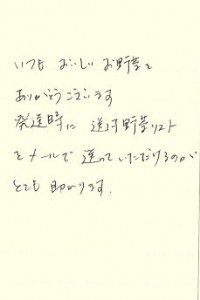 いつも おいしい お野菜を
ありがとうございます
発送時に 送付野菜リスト
をメールで 送っていただけるのが
とても 助かります.